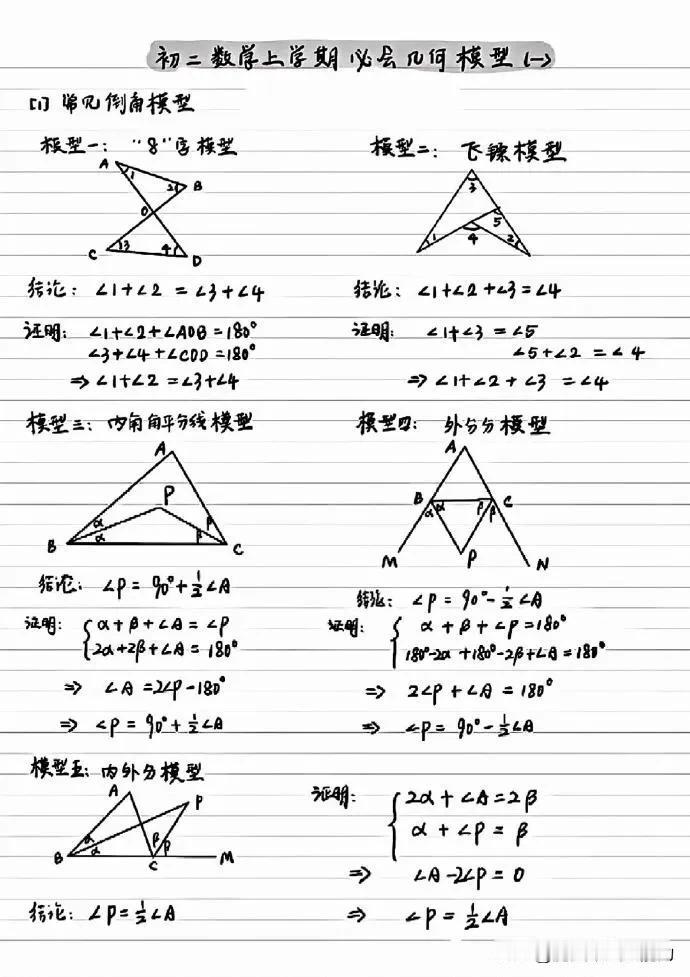 初二数学上学期必会几何模型(一)
(1) 常见倒角模型
模型一: "8"字模型
A
1
2
B
O
C
3
4
D
结论: ∠1+∠2=∠3+∠4
证明: ∠1+∠2+∠AOB=180°
∠3+∠4+∠COD=180°
⇒∠1+∠2=∠3+∠4
模型二: 飞镖模型
3
5
1
4
2
结论: ∠1+∠2+∠3=∠4
证明: ∠1+∠3=∠5
∠5+∠2=∠4
⇒∠1+∠2+∠3=∠4
模型三: 内角角平分线模型
A
P
α
β
α
β
B
C
结论: ∠P=90°+½∠A
证明: α+β+∠A=∠P
2α+2β+∠A=180°
⇒ ∠A=2∠P-180°
⇒ ∠P=90°+½∠A
模型四: 外分分模型
A
B
C
α
α
β
β
M
P
N
结论: ∠P=90°-½∠A
证明: α+β+∠P=180°
180°-2α+180°-2β+∠A=180°
⇒ 2∠P+∠A=180°
⇒ ∠P=90°-½∠A
模型五: 内外分模型
A
P
α
β
B
α
β
C
M
结论: ∠P=½∠A
证明: 2α+∠A=2β
α+∠P=β
⇒ ∠A-2∠P=0
⇒ ∠P=½∠A